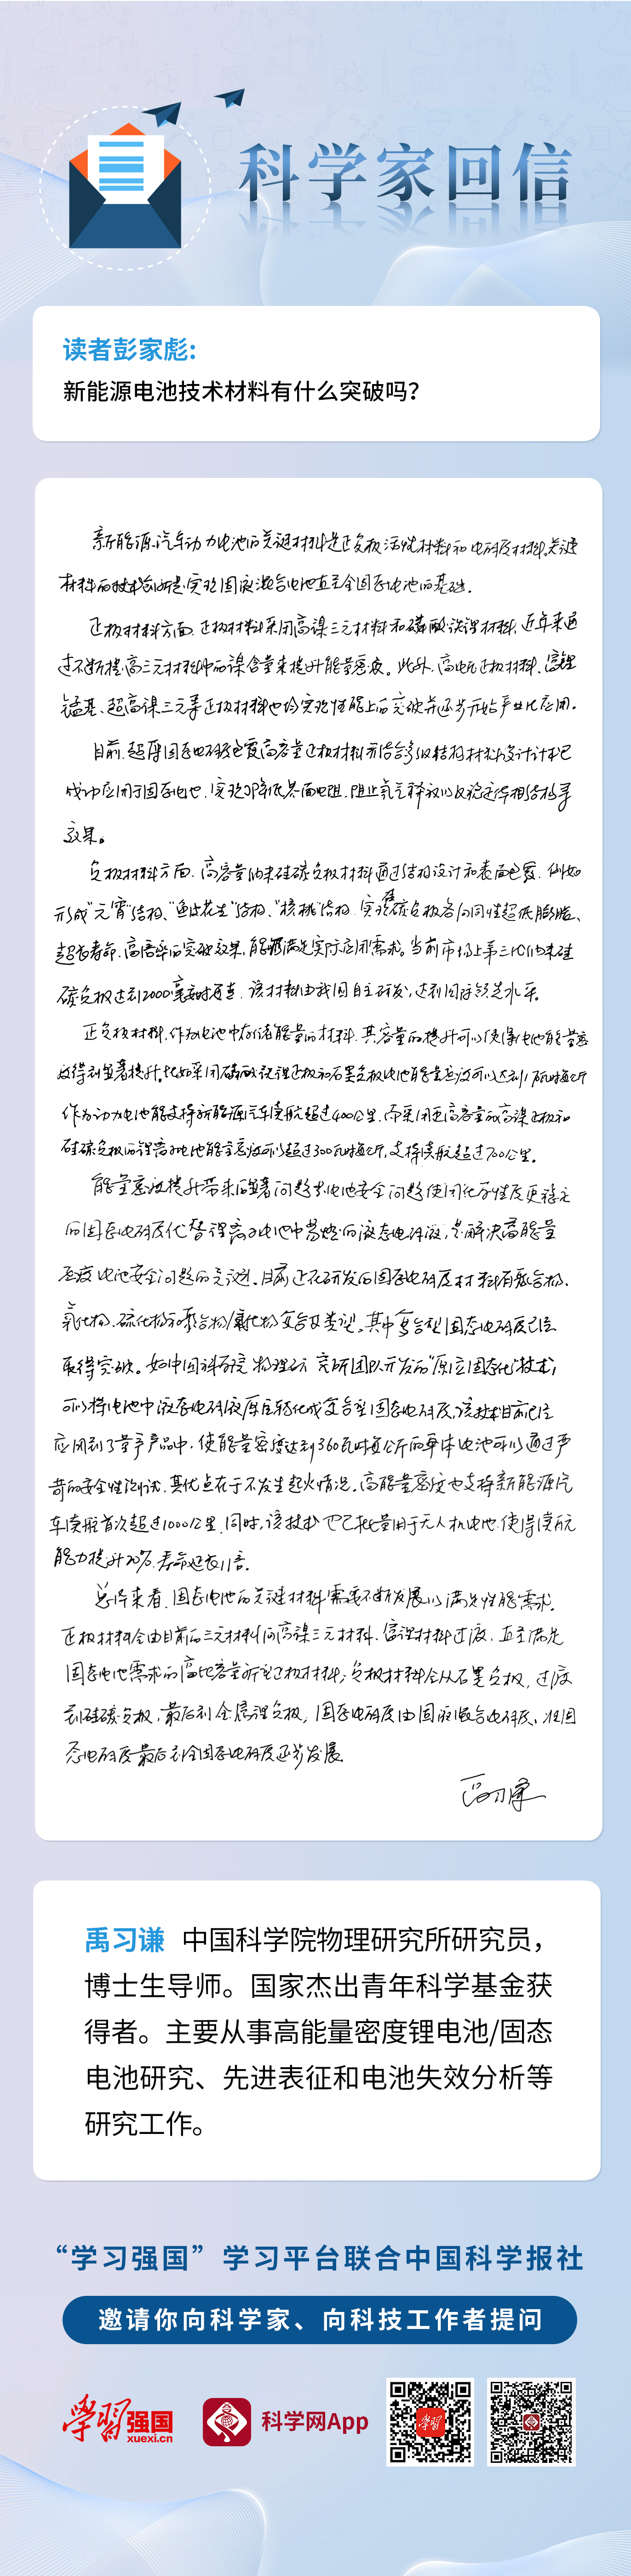 科学家回信
读者彭家彪:
新能源电池技术材料有什么突破吗?
新能源汽车动力电池的关键材料是正负极活性材料和电解质材料。关键
材料的技术创新是实现固液混合电池直至全固态电池的基础。
正极材料方面,正极材料采用高镍三元材料和磷酸铁锂材料,近年来通
过不断提高三元材料中的镍含量来提升能量密度。此外,高电压正极材料、富锂
锰基、超高镍三元等正极材料也均实现性能上的突破并逐步开始产业化应用。
目前,超薄固态电解质包覆高容量正极材料并结合多级结构材料设计技术已
成功应用于固态电池,实现了降低界面电阻,阻止氧气释放以及稳定体相结构等
效果。
负极材料方面,高容量纳米硅碳负极材料通过结构设计和表面包覆,例如
形成“元宵”结构、“鱼皮花生”结构、“核桃”结构,实现硅碳负极各向同性超低膨胀、
超长寿命、高倍率的突破效果,能够满足实际应用需求。当前市场上第三代纳米硅
碳负极达到2000毫安时每克,该材料由我国自主研发,达到国际领先水平。
正负极材料,作为电池中存储能量的材料,其容量的提升可以使得电池能量密
度得到显著提升。比如采用磷酸铁锂正极和石墨负极电池能量密度可以达到瓦时每公斤
作为动力电池能支持新能源汽车续航超过400公里,而采用更高容量的高镍正极和
硅碳负极的锂离子电池能量密度可以超过300瓦时每公斤,支持续航超过700公里。
能量密度提升带来的显著问题是电池安全问题,使用化学性质更稳定
的固态电解质代替锂离子电池中易燃的液态电解液,是解决高能量
密度电池安全问题的关键。目前正在研发的固态电解质材料有聚合物、
氧化物、硫化物和聚合物/氧化物复合及类型。其中复合型固态电解质已经
取得突破。如中国科学院物理研究所团队开发的“原位固态化”技术,
可以将电池中液态电解液原位转化成复合型固态电解质,该技术目前已经
应用到了量产产品中,使能量密度达到360瓦时每公斤的单体电池可以通过严
苛的安全性测试,其优点在于不发生起火情况。高能量密度也支持新能源汽
车续航首次超过1000公里,同时,该技术也已批量用于无人机电池,使得续航
能力提升20%,寿命延长1倍。
总体来看,固态电池的关键材料需要不断发展以满足性能需求。
正极材料会由目前的三元材料向高镍三元材料、富锂材料过渡,直至满足
固态电池需求的高比容量新型正极材料;负极材料会从石墨负极,过渡
到硅碳负极,最后到金属锂负极;固态电解质由固液混合电解质、准固
态电解质最后到全固态电解质逐步发展。
禹习谦
禹习谦 中国科学院物理研究所研究员,
博士生导师。国家杰出青年科学基金获
得者。主要从事高能量密度锂电池/固态
电池研究、先进表征和电池失效分析等
研究工作。
“学习强国”学习平台联合中国科学报社
邀请你向科学家、向科技工作者提问
学习强国
xuexi.cn
科学网App
学习